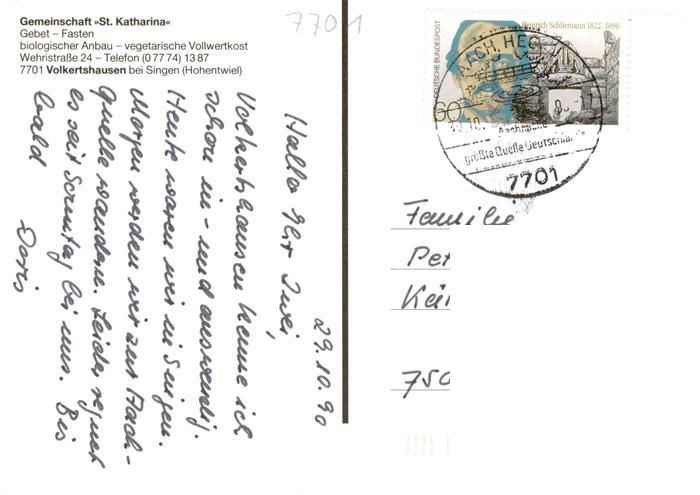 Gemeinschaft »St. Katharina«
Gebet – Fasten
biologischer Anbau – vegetarische Vollwertkost
Wehristraße 24 – Telefon (0 77 74) 13 87
7701 Volkertshausen bei Singen (Hohentwiel)
7701
29.10.90
Hallo Ihr Zwei,
Volkertshausen kenne ich
schon in- und auswendig.
Heute waren wir in Singen.
Morgen werden wir zur Aach-
quelle wandern. Leider regnet
es seit Sonntag bei uns. Bis
bald Doris
DEUTSCHE BUNDESPOST
Heinrich Schliemann 1822 - 1890
60
AACH, HEG
Aachquelle
größte Quelle Deutschlands
7701
Familie
Pet
Kä
750